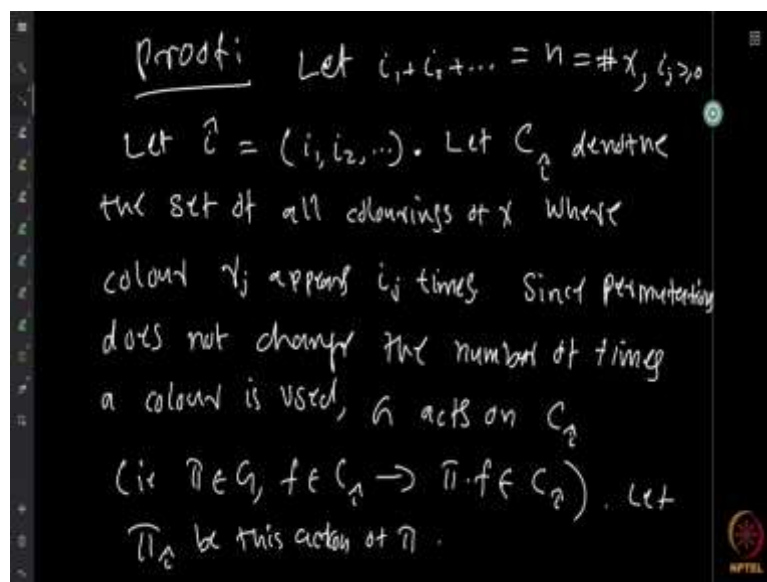 Proof: Let i₁+i₂+... = n = #X, i_j ≥ 0
Let î = (i₁, i₂, ...). Let C_î denotne
the set of all colourings of X where
colour r_j appears i_j times. Since permutations
does not change the number of times
a colour is used, G acts on C_î
(ie π ∈ G, f ∈ C_î → π·f ∈ C_î). Let
π_î be this action of π.
NPTEL